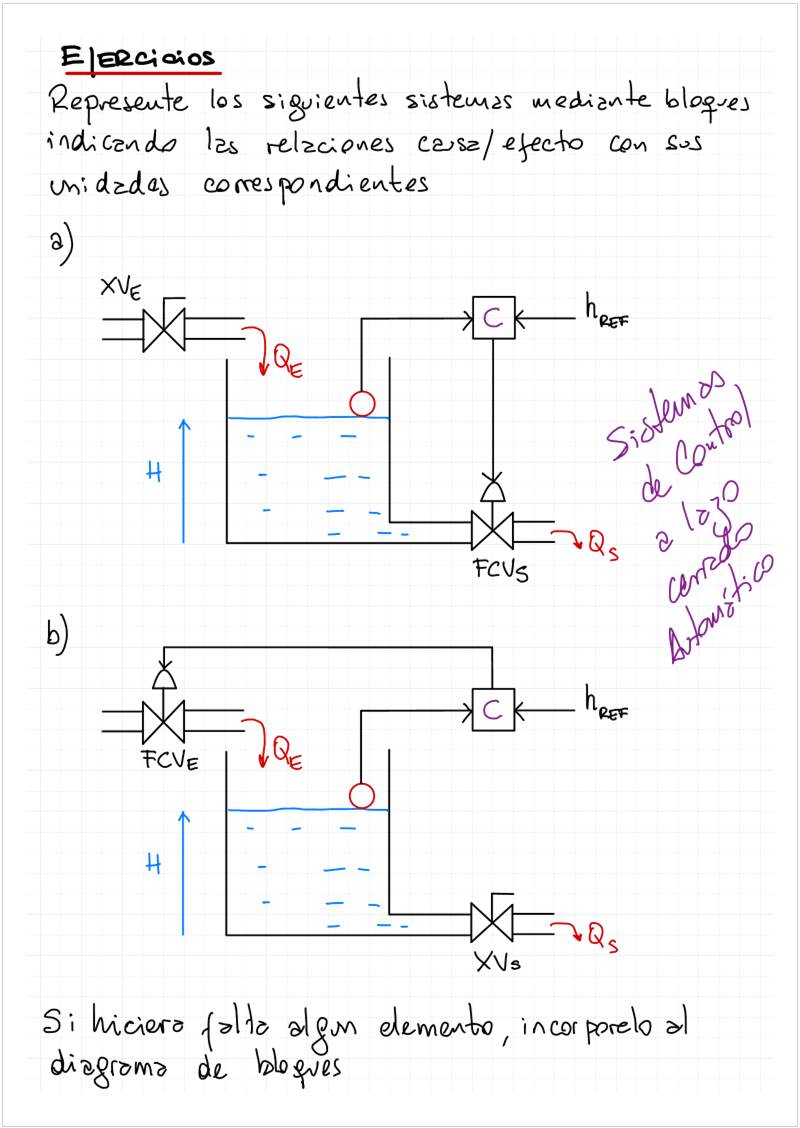 EJERCICIOS
Represente los siguientes sistemas mediante bloques
indicando las relaciones causa/efecto con sus
unidades correspondientes
a)
XVE
QE
C
hREF
H
FCVS
QS
Sistemas
de Control
a lazo
cerrado
Automático
b)
C
hREF
FCVE
QE
H
XVs
QS
Si hiciera falta algun elemento, incorporelo al
diagrama de bloques